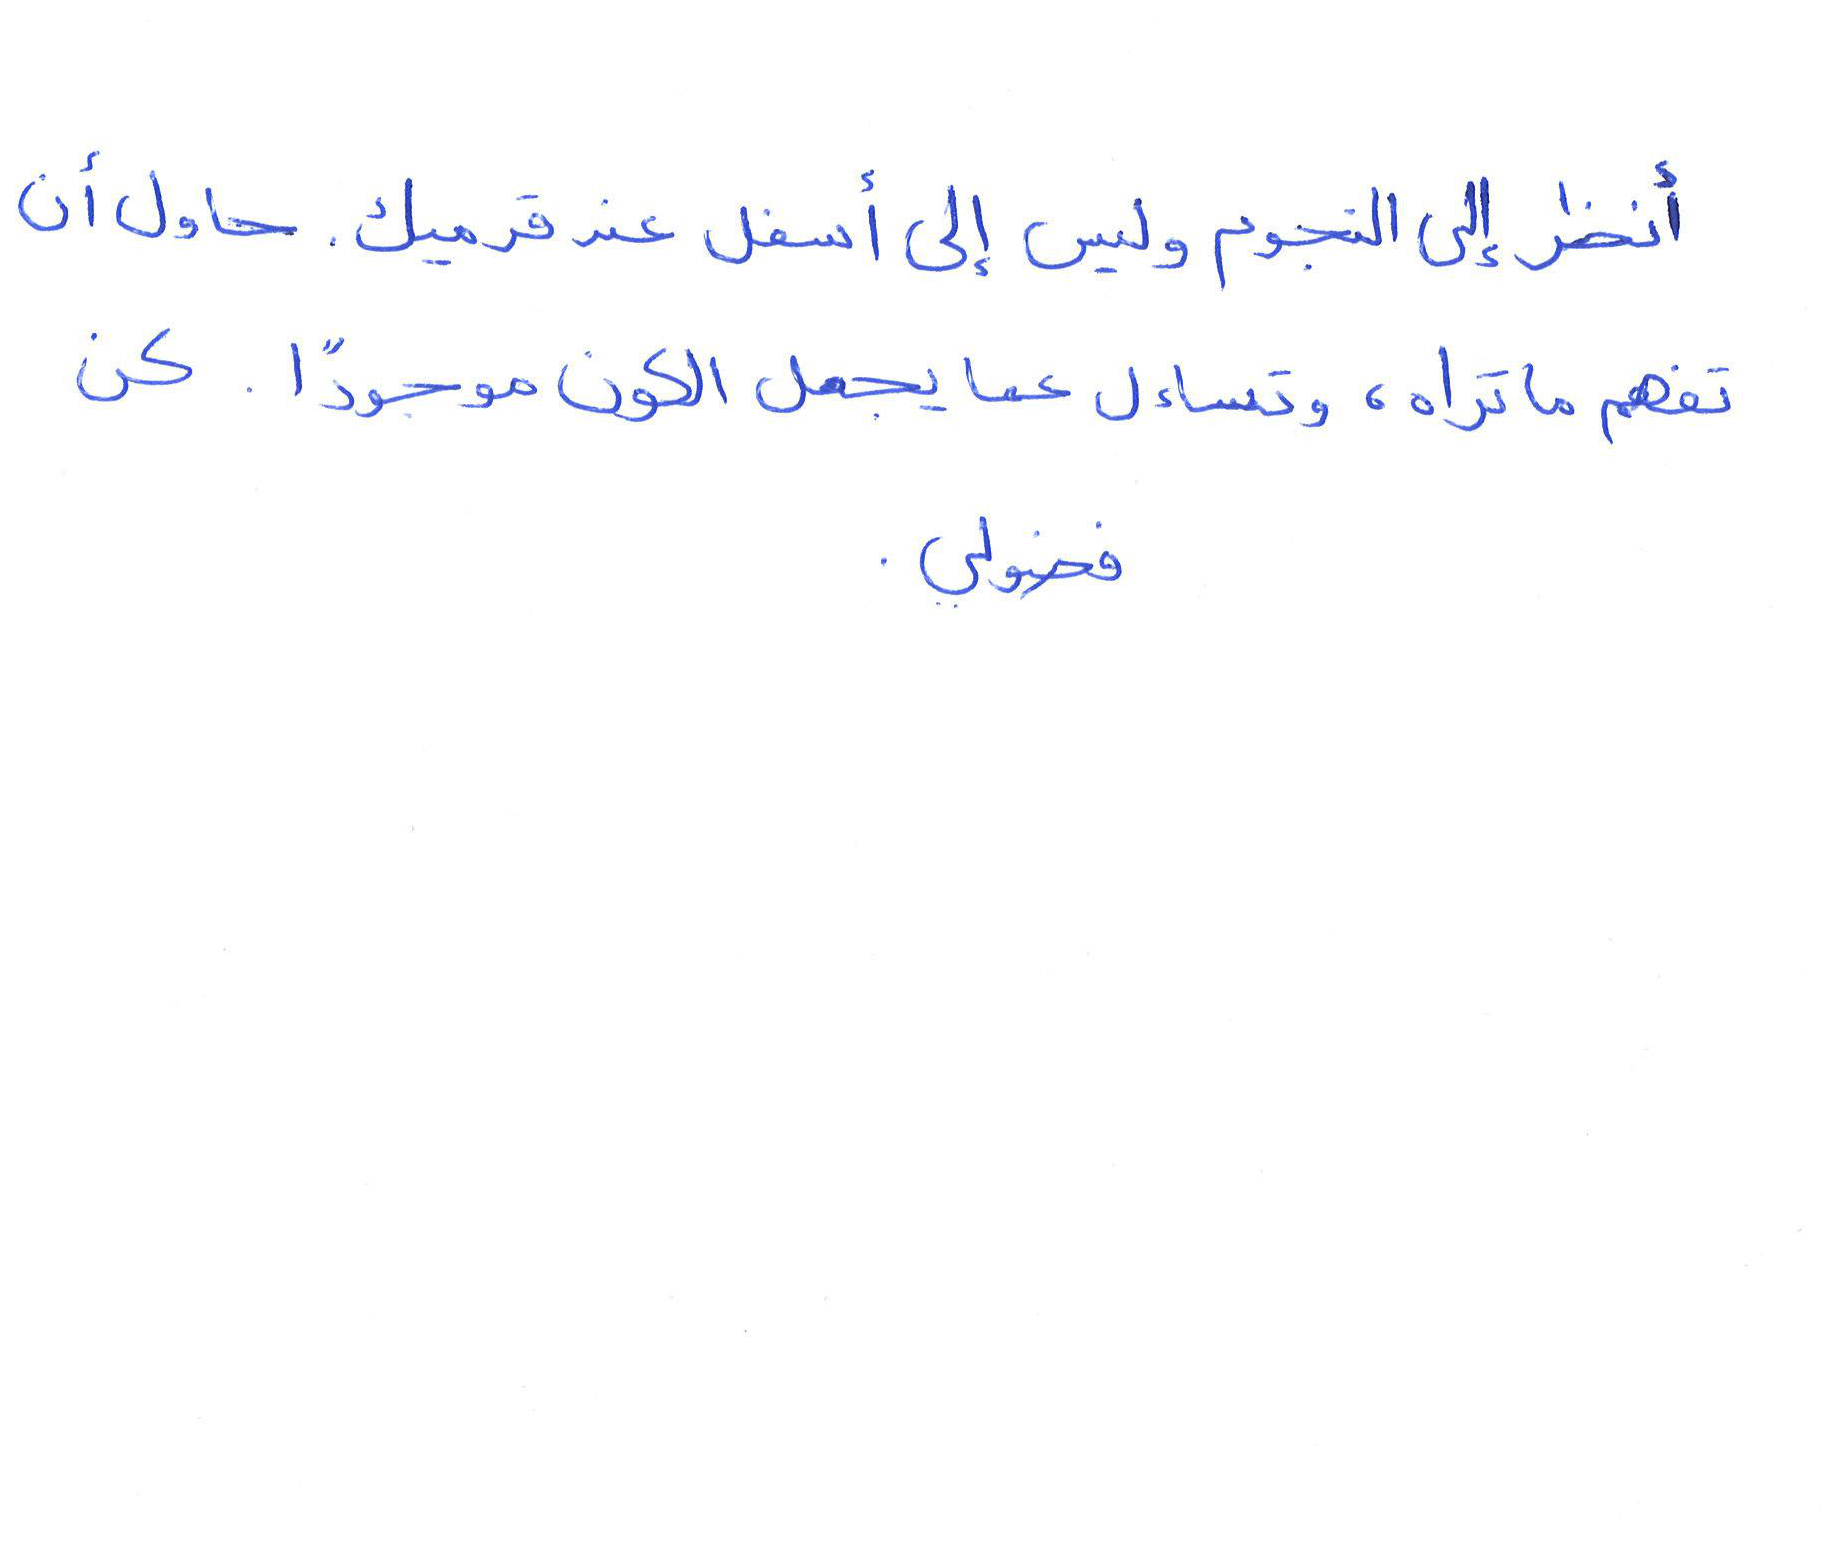 أنظر إلى النجوم وليس إلى أسفل عند قدميك. حاول أن
تفهم ما تراه، وتساءل عما يجعل الكون موجودًا. كن
فضولي.